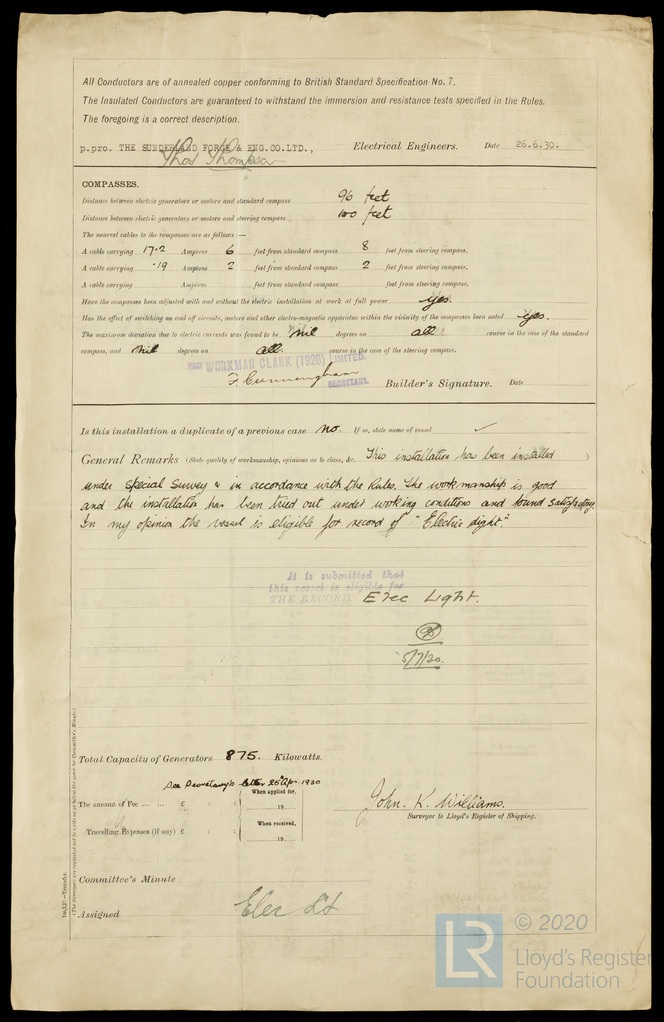 All Conductors are of annealed copper conforming to British Standard Specification No. 7.
The Insulated Conductors are guaranteed to withstand the immersion and resistance tests specified in the Rules.
The foregoing is a correct description.
p.pro. THE SUNDERLAND FORGE & ENG.CO.LTD., Electrical Engineers. Date 26.6.30.
Thos Thompson
COMPASSES.
Distance between electric generators or motors and standard compass 96 feet
Distance between electric generators or motors and steering compass 100 feet
The nearest cables to the compasses are as follows:—
A cable carrying 17.2 Ampères 6 feet from standard compass 8 feet from steering compass.
A cable carrying .19 Ampères 2 feet from standard compass 2 feet from steering compass.
A cable carrying Ampères feet from standard compass feet from steering compass.
Have the compasses been adjusted with and without the electric installation at work at full power yes.
Has the effect of switching on and off circuits, motors and other electro-magnetic apparatus within the vicinity of the compasses been noted yes.
The maximum deviation due to electric currents was found to be nil degrees on all course in the case of the standard
compass, and nil degrees on all. course in the case of the steering compass.
PRO WORKMAN CLARK (1928) LIMITED.
F. Cunningham SECRETARY. Builder's Signature. Date
Is this installation a duplicate of a previous case no. If so, state name of vessel ✓
General Remarks (State quality of workmanship, opinions as to class, &c. This installation has been installed )
under special Survey & in accordance with the Rules. The workmanship is good
and the installation has been tried out under working conditions and found satisfactory.
In my opinion the vessel is eligible for record of "Electric Light".
It is submitted that
this vessel is eligible for
THE RECORD. Elec Light.
5/7/30.
Total Capacity of Generators 875. Kilowatts.
See Secretary's letter 25th Ap. 1930
The amount of Fee ... ... £ : : When applied for,
19
Travelling Expenses (if any) £ : : When received,
19
John. K. Williams.
Surveyor to Lloyd's Register of Shipping.
Committee's Minute
Assigned Elec Lt
© 2020
LR Lloyd's Register
Foundation